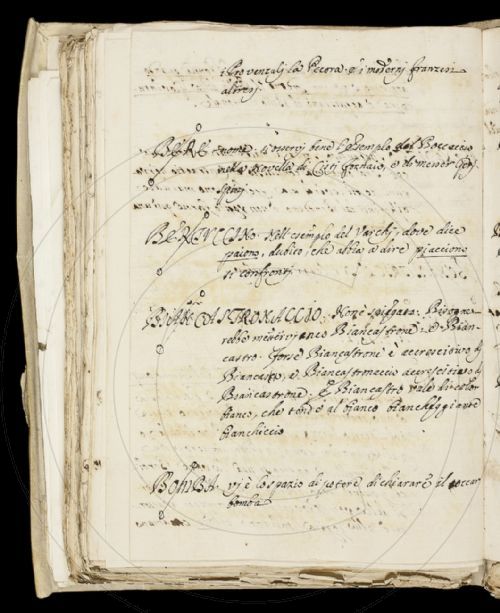 i Provenzali la Pecora. e i moderni franzesi
altresi.
BERE. nome. Osservi bene l'esempio del Boccaccio
nella Novella di Cisti fornaio, e di messer Geri
Spini.
BERTUCCINO. Nell'esempio del Varchi, dove dice
paiono, dubito, che abbia a dire piacciono
si confronti.
BIANCASTRONACCIO. Non è spiegata. Bisogne-
rebbe mettervi anco Biancastrone. e Bian-
castro. Forse Biancastrone è accrescitivo di
Biancastro, e Biancastronaccio accrescitivo di
Biancastrone. E Biancastro vale di color
bianco, che tende al bianco
bianchiccio
BOMBA. vi è lo spazio al potere dichiarare il toccar
bomba